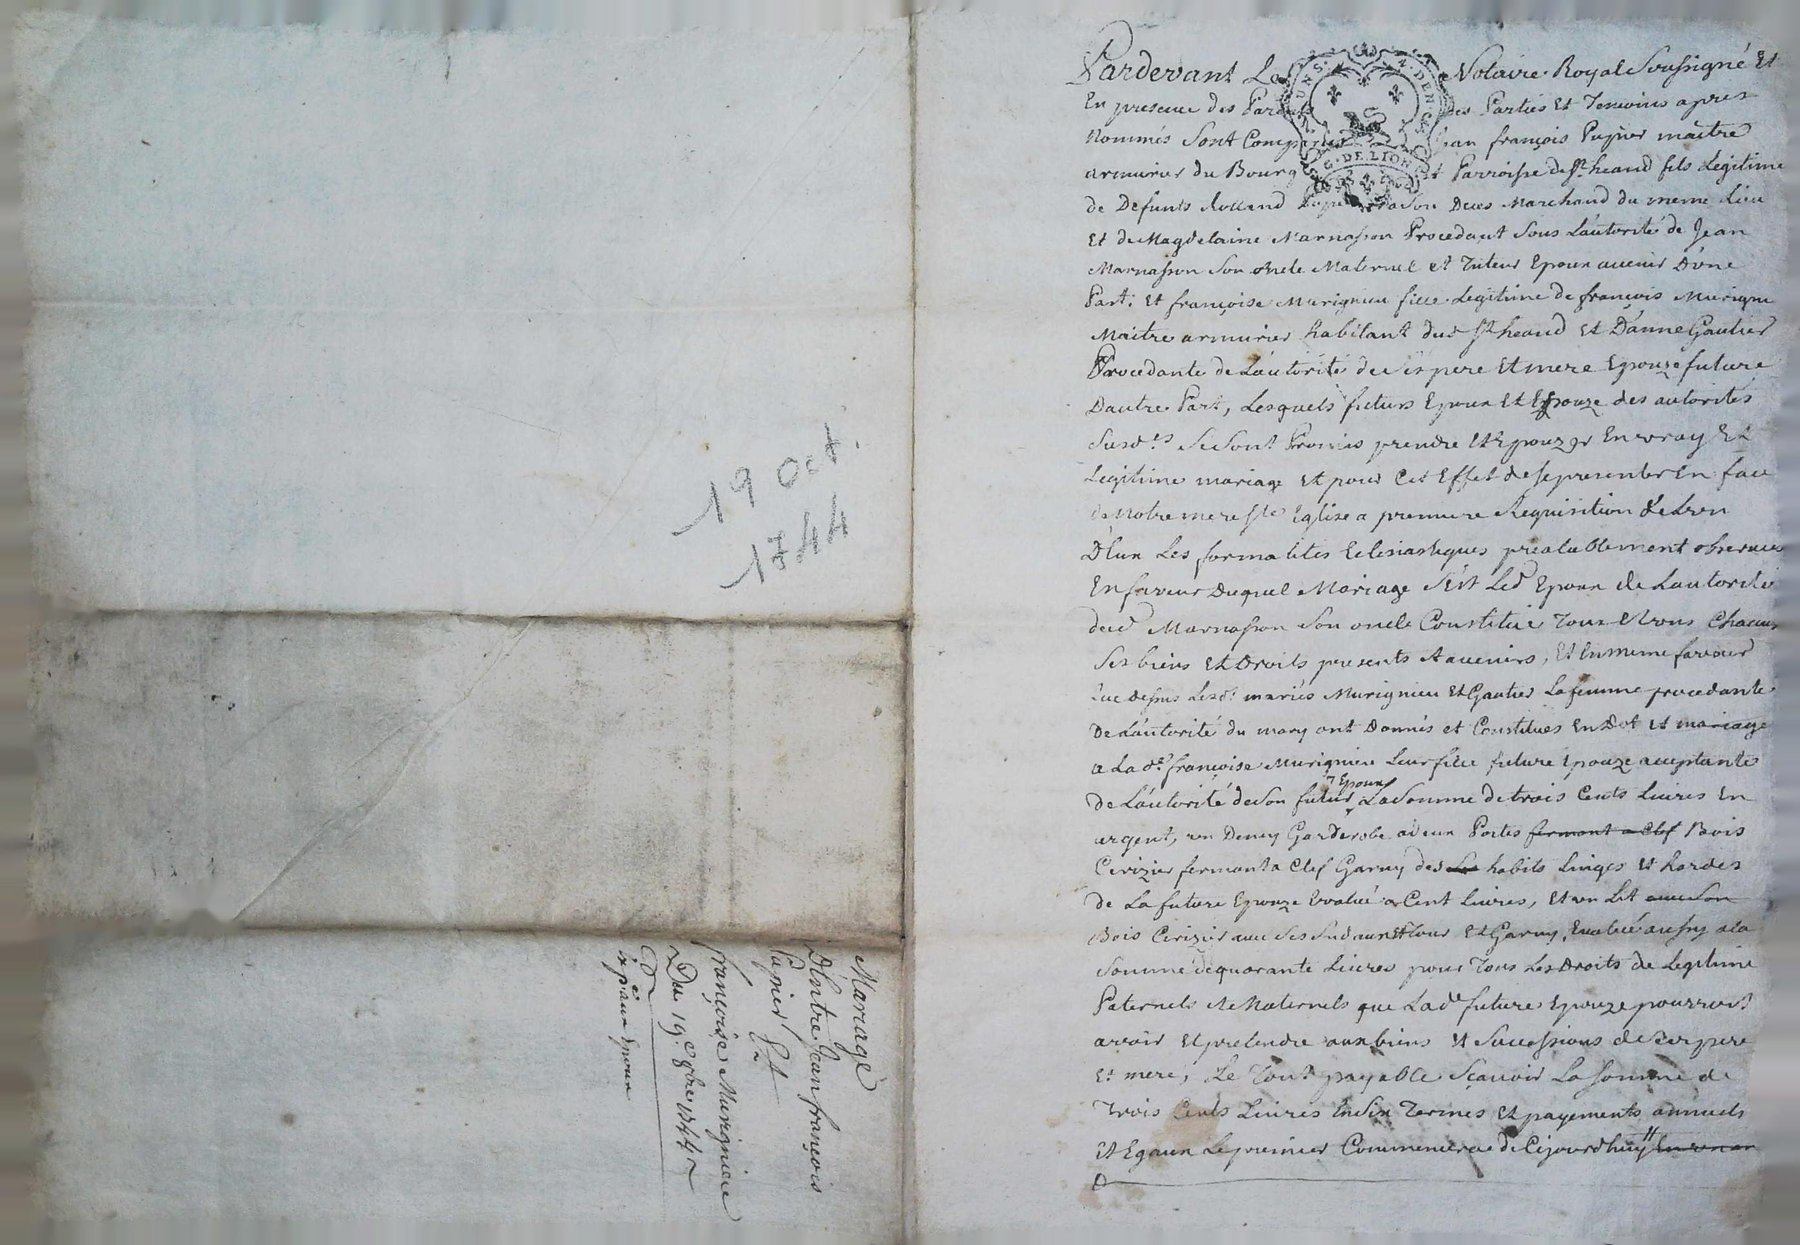 19 Oct.
1744
Mariage
D'Entre Jean françois
Pagnier Et
françoise Murignieu
Du 19e. 8bre 1744
Epoux
Pardevant Le Notaire Royal Soussigné Et
En presence des Parents des Parties Et Temoins apres
Nommés Sont Comparus Jean françois maitre
armurier du Bourg Et Parroisse de St. heand fils Legitime
de Defunts Rolland Marchand du meme Lieu
Et de Magdelaine Marnasson Procedant Sous L'autorité de Jean
Marnasson Son oncle Maternel et Tuteur Epoux avenir D'une
Part; Et françoise Murignieu fille Legitime de françois Murigni
Maitre armurier habitant dud St. heand Et D'anne Gautier
Procedante de L'autorité de pere Et mere Epouze future
Dautre Part, Lesquels futurs Epoux Et Epouze des autorités
Susd.es Se Sont Promis prendre Et Epouzer En vray Et
Legitime mariage Et pour Cet Effet de Se presenter En face
de Notre mere Ste Eglise a premiere Requisition de Lun
D'lun Les formalités Eclesiastiques prealablement observées
En faveur Duquel Mariage S'est Led Epoux de L'autorité
dud Marnasson Son oncle Constitué Tous Et vons Chacuns
Ses biens Et Droits presents Et avenirs, Et En meme faveur
que dessus Lesd. mariés Murignieu Et Gautier La femme procedante
De L'autorité du mary ont Donnés et Constitués En Dot Et mariage
a La d.e françoise Murignieu Leur fille future Epouze acceptante
De L'autorité de Son futur Epoux La Somme de trois Cents Livres En
argent, un Demy Garderobe a deux Portes fermant a Clef Bois
Cerizier fermant a Clef Garny des habits Linges Et hardes
de La future Epouze Evalué a Cent Livres, Et un Lit avec Son
Bois Cerizier avec Ses Tour Et Garny, Evalué aussy a la
Somme de quarante Livres pour Tous Les Droits de Legitime
Paternels Et Maternels que La de future Epouze pourroit
avoir Et pretendre aux biens Et Successions de Ses pere
Et mere; Le Tout payable Sçavoir La Somme de
Trois Cents Livres En Six Termes Et payements annuels
Et Egaux Le premier Commencera de Cejourd'huy